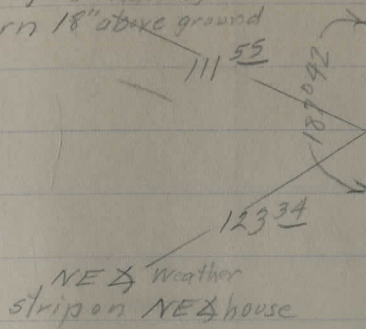 rn 18" above ground
111 55
187°42
123 34
NE∠ weather
strip on NE∠ house